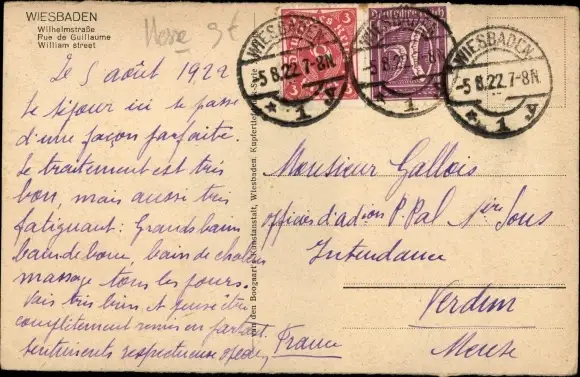 WIESBADEN
Wilhelmstraße
Rue de Guillaume
William street
Hesse 9€
WIESBADEN
-5.8.22.7-8N
* 1 y
WIESBADEN
-5.8.22.7-8N
* 1 y
WIESBADEN
-5.8.22.7-8N
* 1 y
3
3
Le 5 août 1922
Le séjour ici se passe
d'une façon parfaite.
Le traitement est très
bon, mais aussi très
fatiguant : Grands bains
bain de boue, bain de chaleur
massage tous les jours.
Vais très bien, et pense être
complètement remis en partant
Sentiments respectueux
van den Boogaart Konstanstalt, Wiesbaden.
Monsieur Gallois
officier d'ad^ion P.Pal 1ère Sous
Intendance
Verdun
Meuse
France